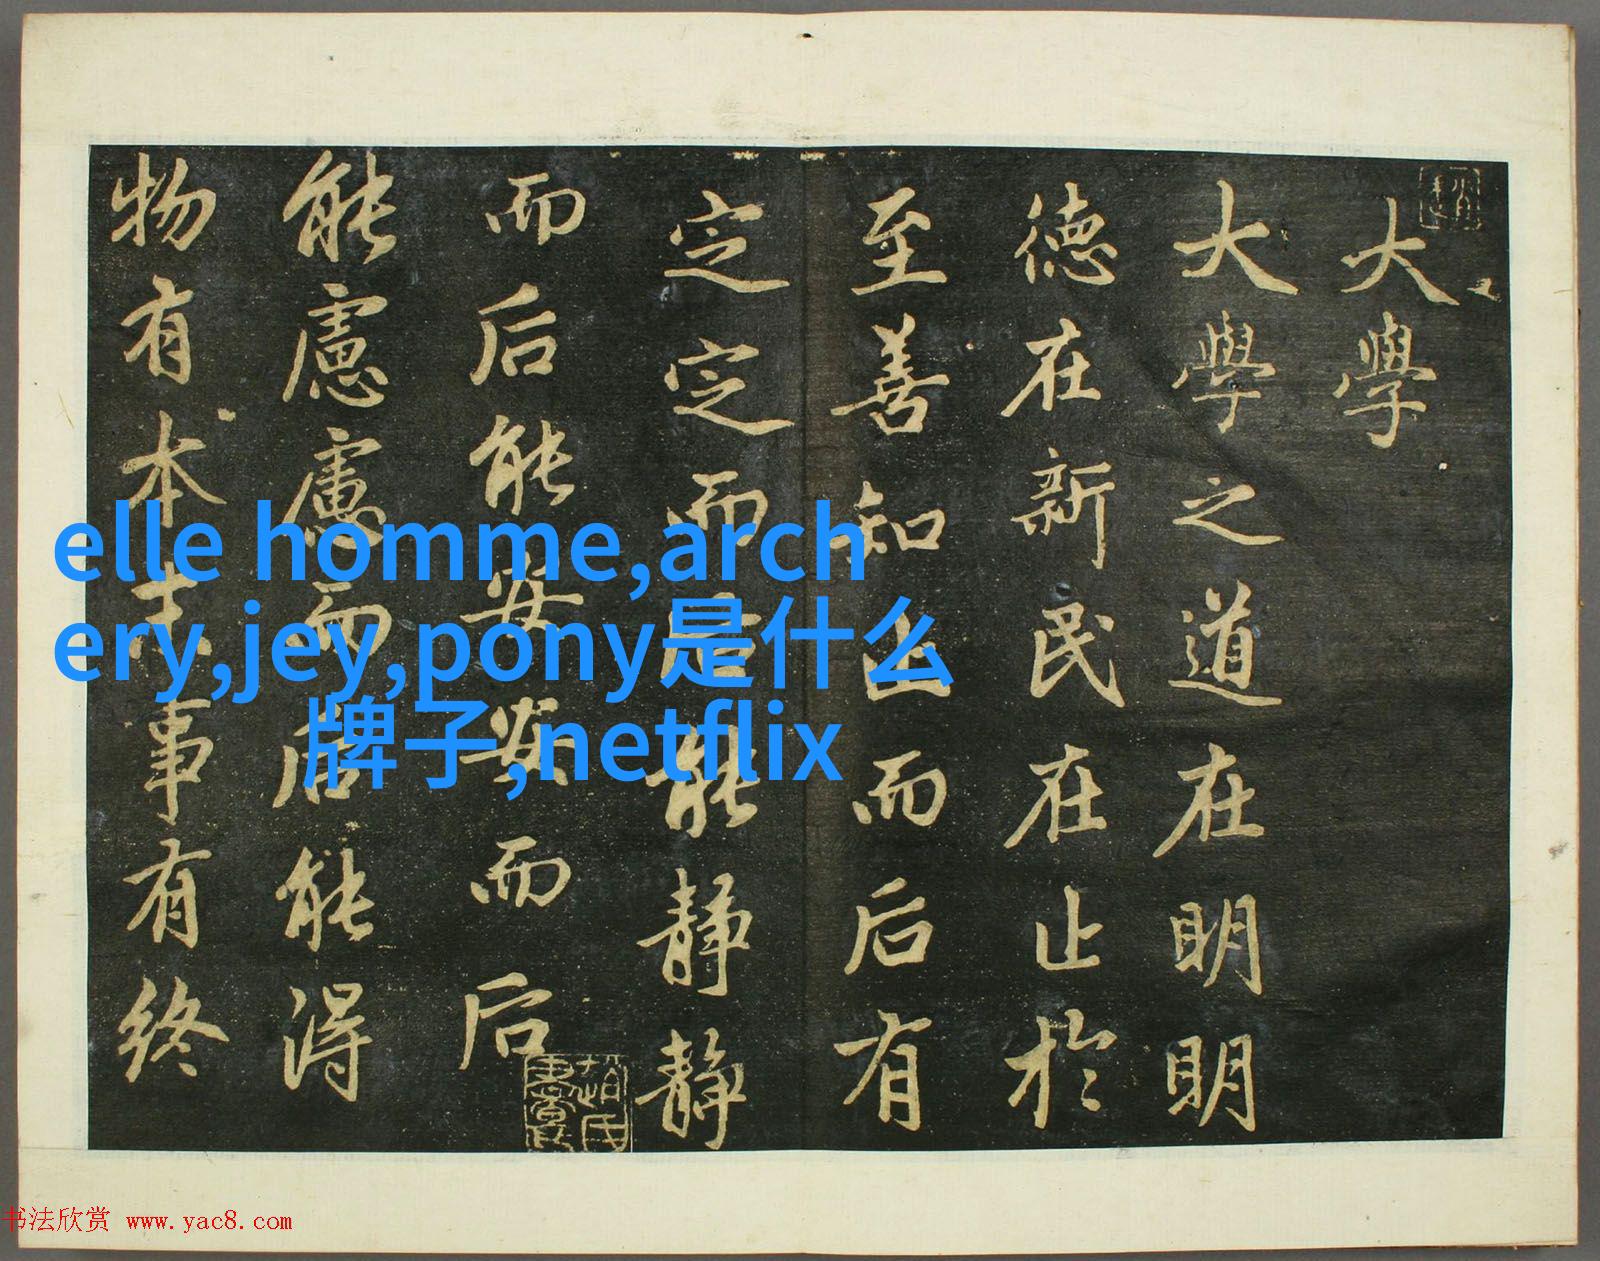 大學
大學之道在明明
德在新民在止於
至善知止而后有
定定而后能靜靜
而后能安安而后
能慮慮而后能得
物有本末事有終
elle homme,arch
ery,jey,pony是什么
牌子,netflix
书法欣赏 www.yac8.com